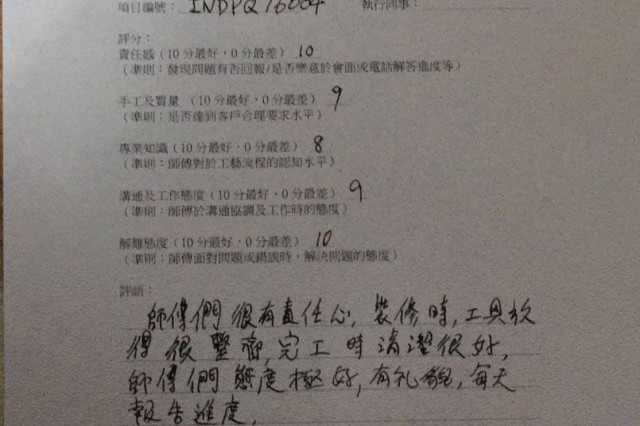 項目編號： INDPQ16004 執行同事：
評分：
責任感（10分最好，0分最差） 10
（準則：發現問題有否回報/是否樂意於會面或電話解答進度等）
手工及質量 （10分最好，0分最差） 9
（準則：是否達到客戶合理要求水平）
專業知識（10分最好，0分最差） 8
（準則：師傅對於工藝流程的認知水平）
溝通及工作態度（10分最好，0分最差） 9
（準則：師傅於溝通協調及工作時的態度）
解難態度（10分最好，0分最差） 10
（準則：師傅面對問題或錯誤時，解決問題的態度）
評語：
師傅們很有責任心，裝修時，工具放
得很整齊，完工時清潔很好，
師傅們態度極好，有礼貌，每天
報告進度，